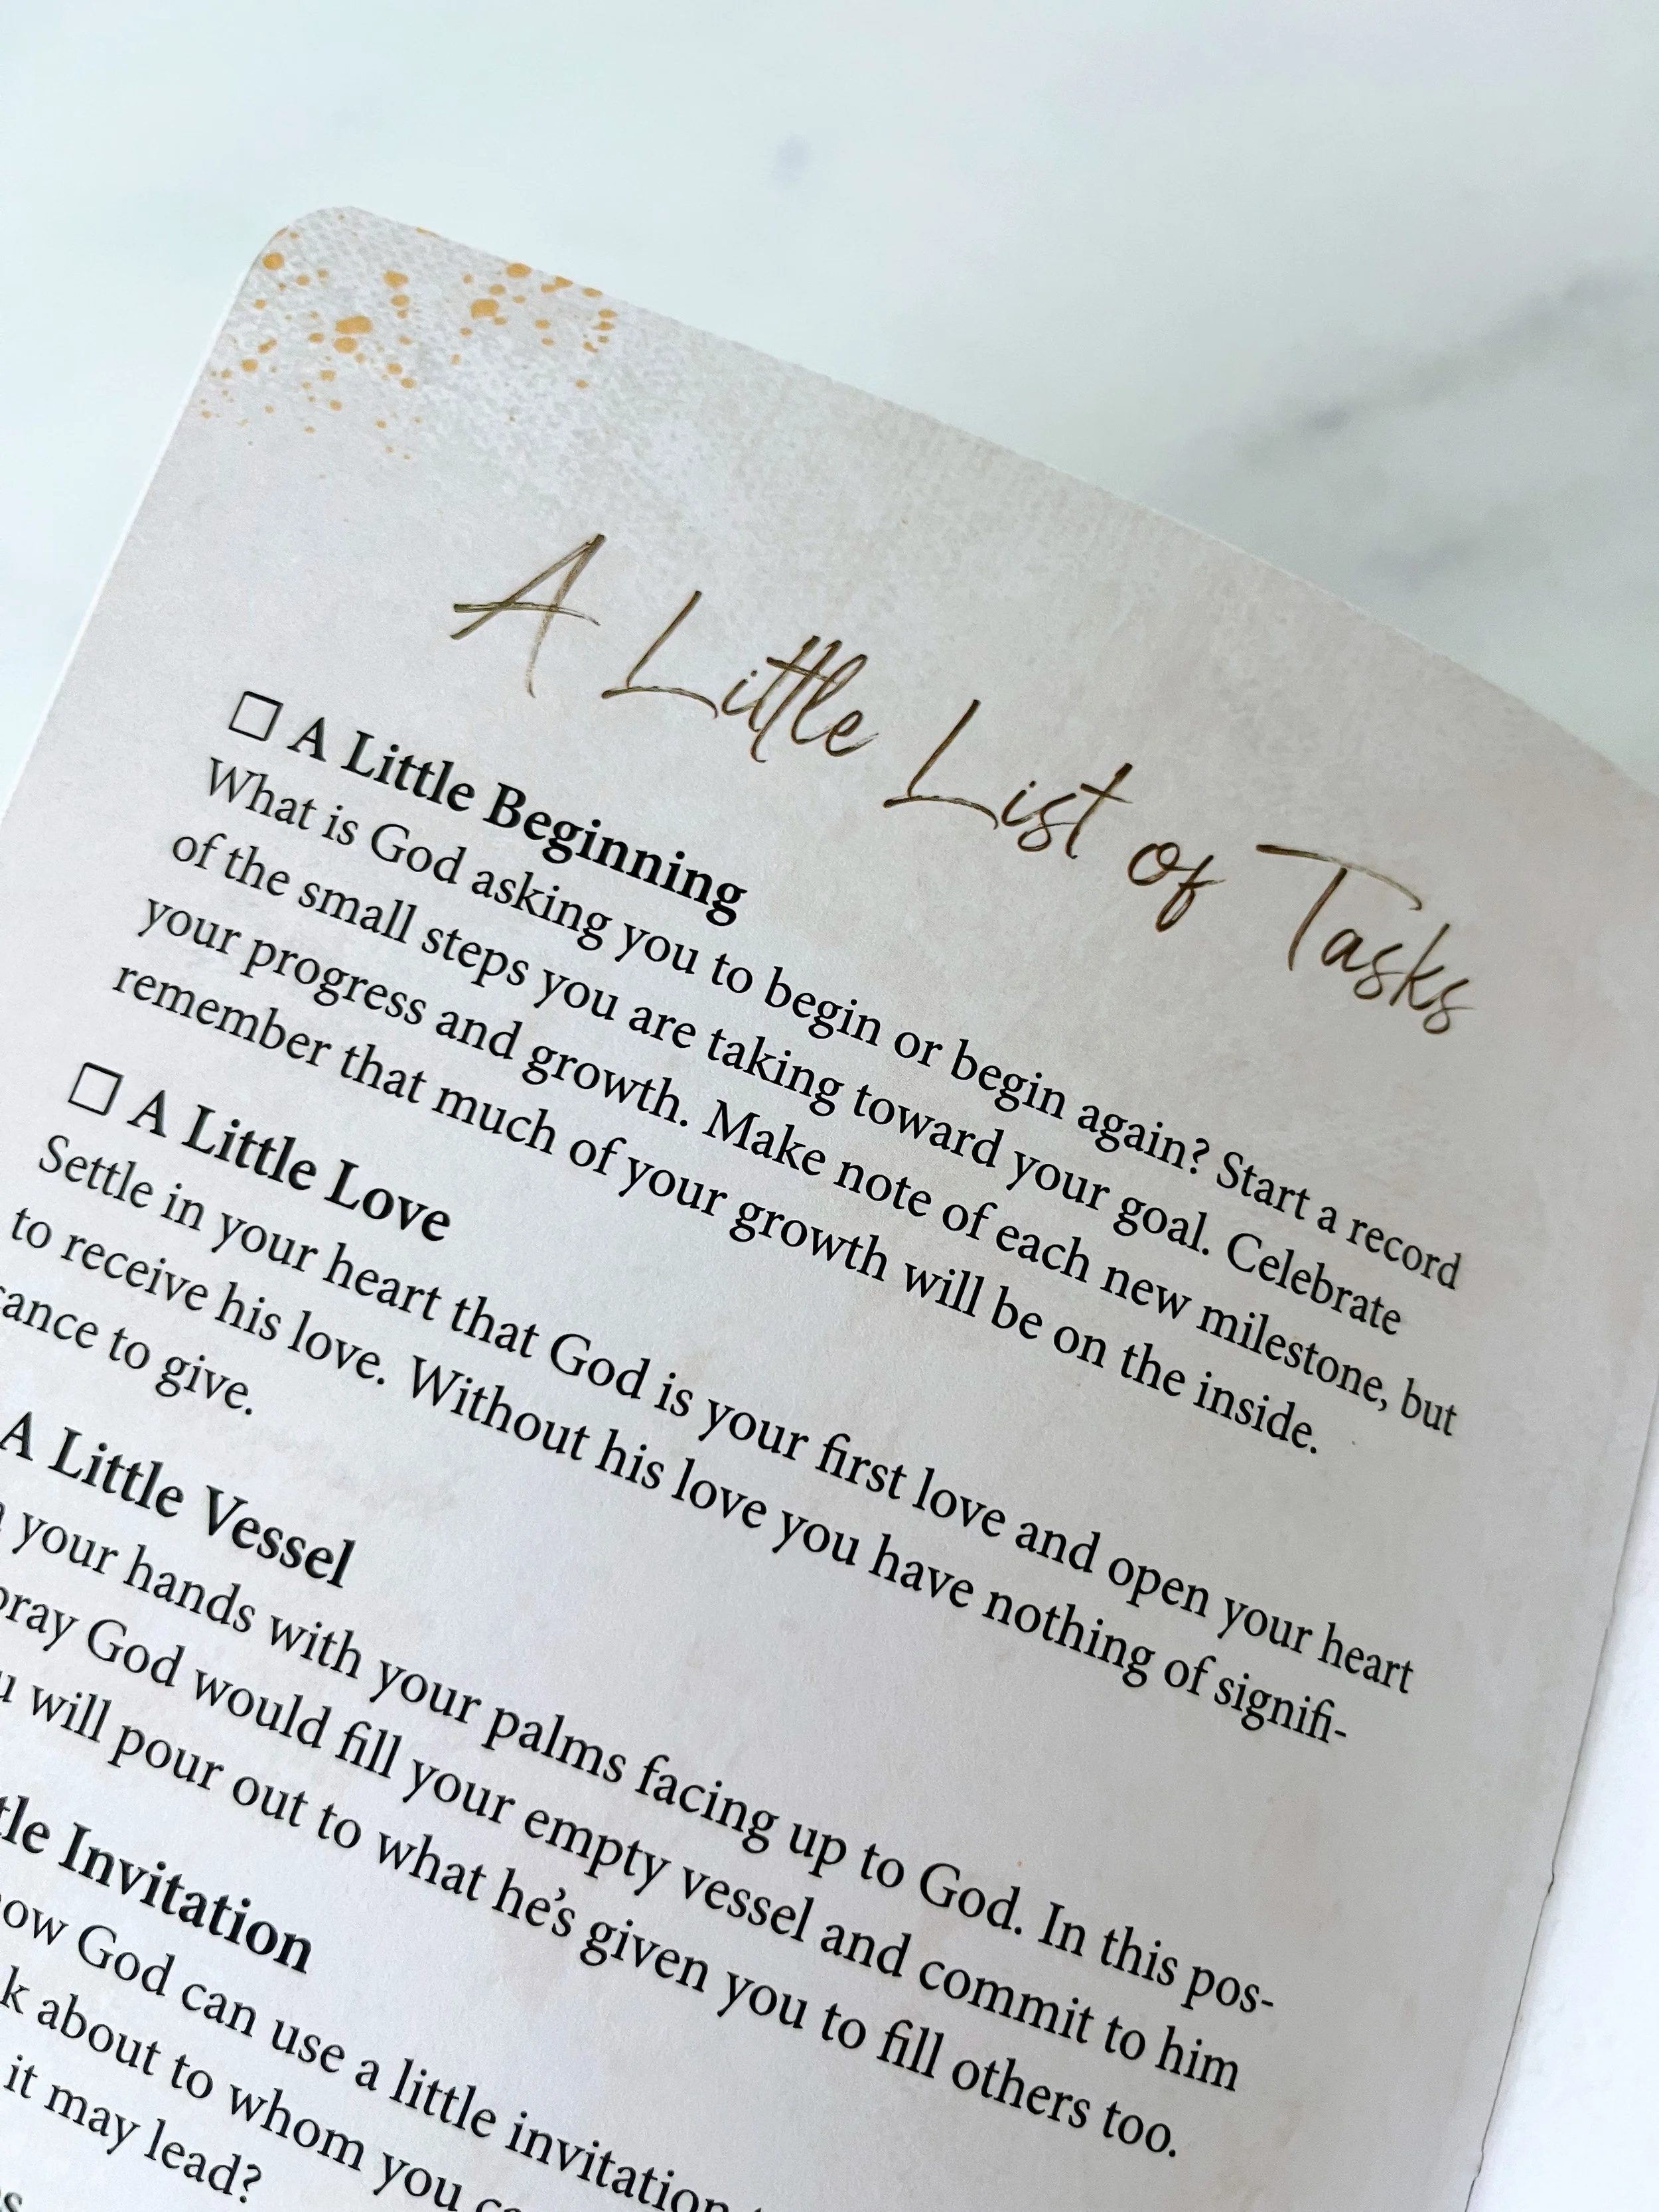 A Little List of Tasks
☐ A Little Beginning
What is God asking you to begin or begin again? Start a record
of the small steps you are taking toward your goal. Celebrate
your progress and growth. Make note of each new milestone, but
remember that much of your growth will be on the inside.
☐ A Little Love
Settle in your heart that God is your first love and open your heart
to receive his love. Without his love you have nothing of signifi-
cance to give.
A Little Vessel
your hands with your palms facing up to God. In this pos-
pray God would fill your empty vessel and commit to him
will pour out to what he's given you to fill others too.
Invitation
God can use a little invitation
about to whom you
it may lead?